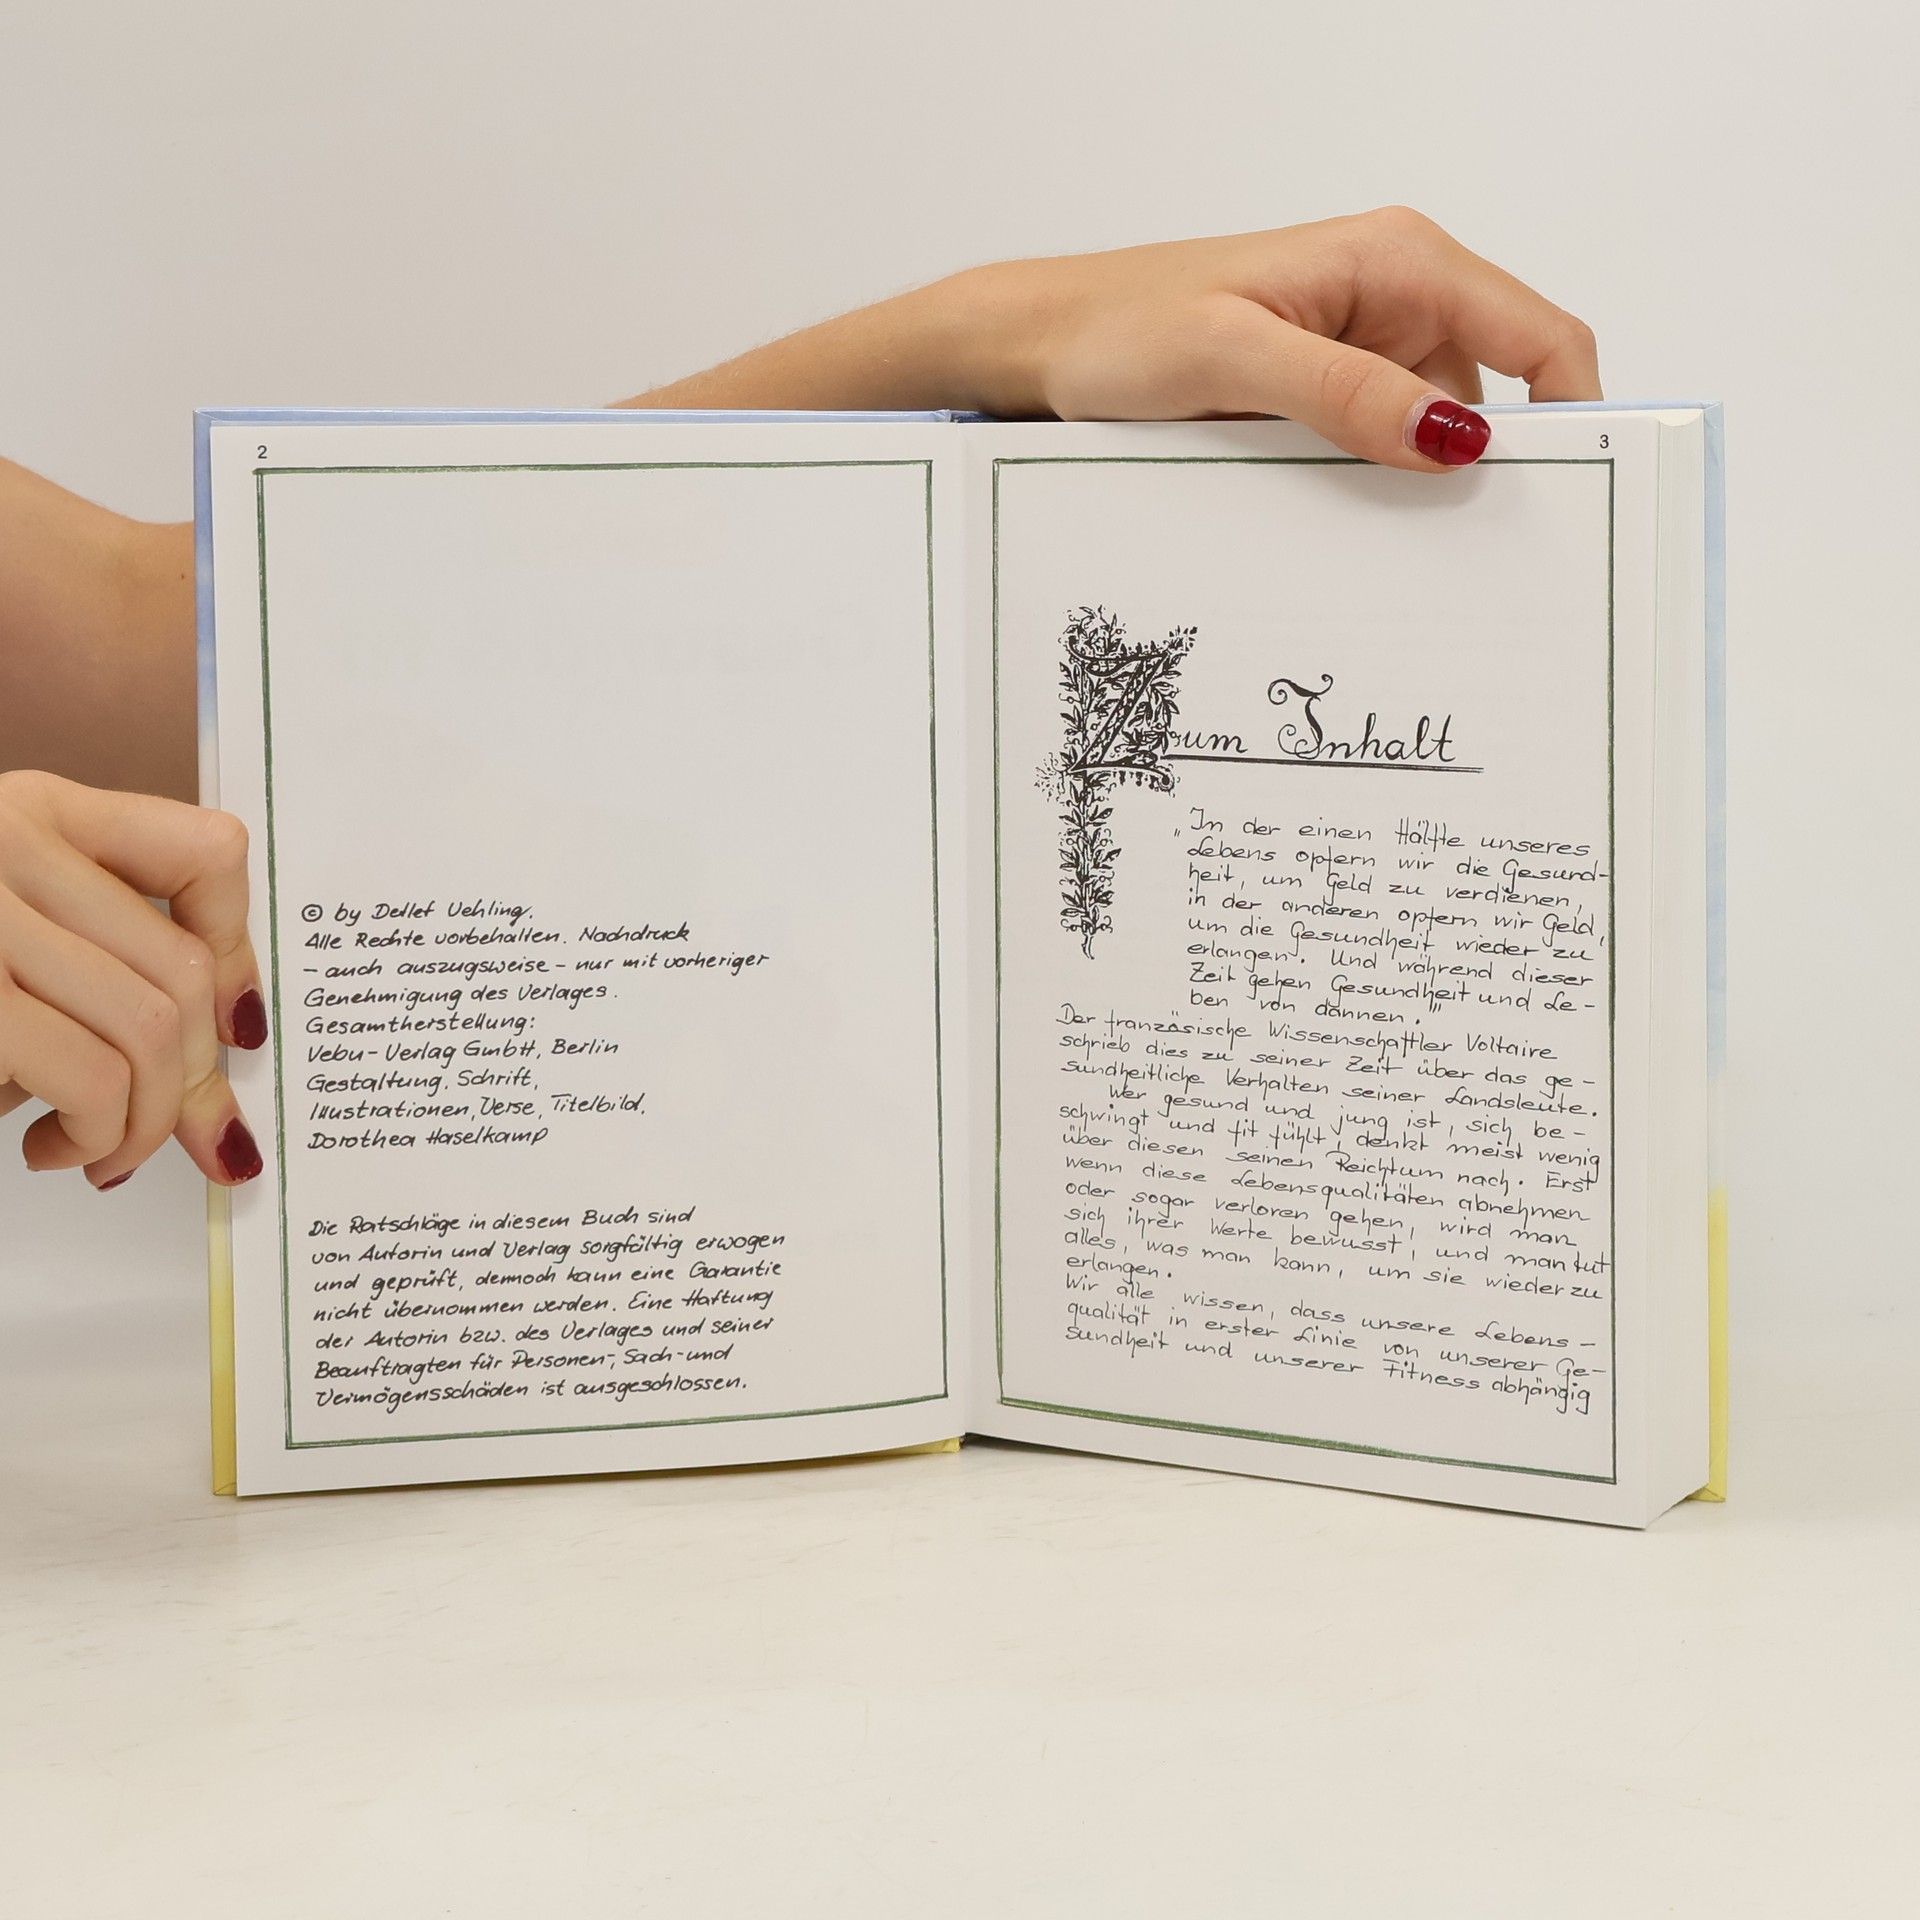 2
© by Detlef Uehling.
Alle Rechte vorbehalten. Nachdruck
– auch auszugsweise – nur mit vorheriger
Genehmigung des Verlages.
Gesamtherstellung:
Vebu-Verlag GmbH, Berlin
Gestaltung, Schrift,
Illustrationen, Verse, Titelbild,
Dorothea Haselkamp
Die Ratschläge in diesem Buch sind
von Autorin und Verlag sorgfältig erwogen
und geprüft, dennoch kann eine Garantie
nicht übernommen werden. Eine Haftung
der Autorin bzw. des Verlages und seiner
Beauftragten für Personen-, Sach- und
Vermögensschäden ist ausgeschlossen.
3
Zum Inhalt
„In der einen Hälfte unseres
Lebens opfern wir die Gesund-
heit, um Geld zu verdienen,
in der anderen opfern wir Geld,
um die Gesundheit wieder zu
erlangen. Und während dieser
Zeit gehen Gesundheit und Le-
ben von dannen."
Der französische Wissenschaftler Voltaire
schrieb dies zu seiner Zeit über das ge-
sundheitliche Verhalten seiner Landsleute.
Wer gesund und jung ist, sich be-
schwingt und fit fühlt, denkt meist wenig
über diesen seinen Reichtum nach. Erst
wenn diese Lebensqualitäten abnehmen
oder sogar verloren gehen, wird man
sich ihrer Werte bewusst, und man tut
alles, was man kann, um sie wieder zu
erlangen.
Wir alle wissen, dass unsere Lebens-
qualität in erster Linie von unserer Ge-
sundheit und unserer Fitness abhängig